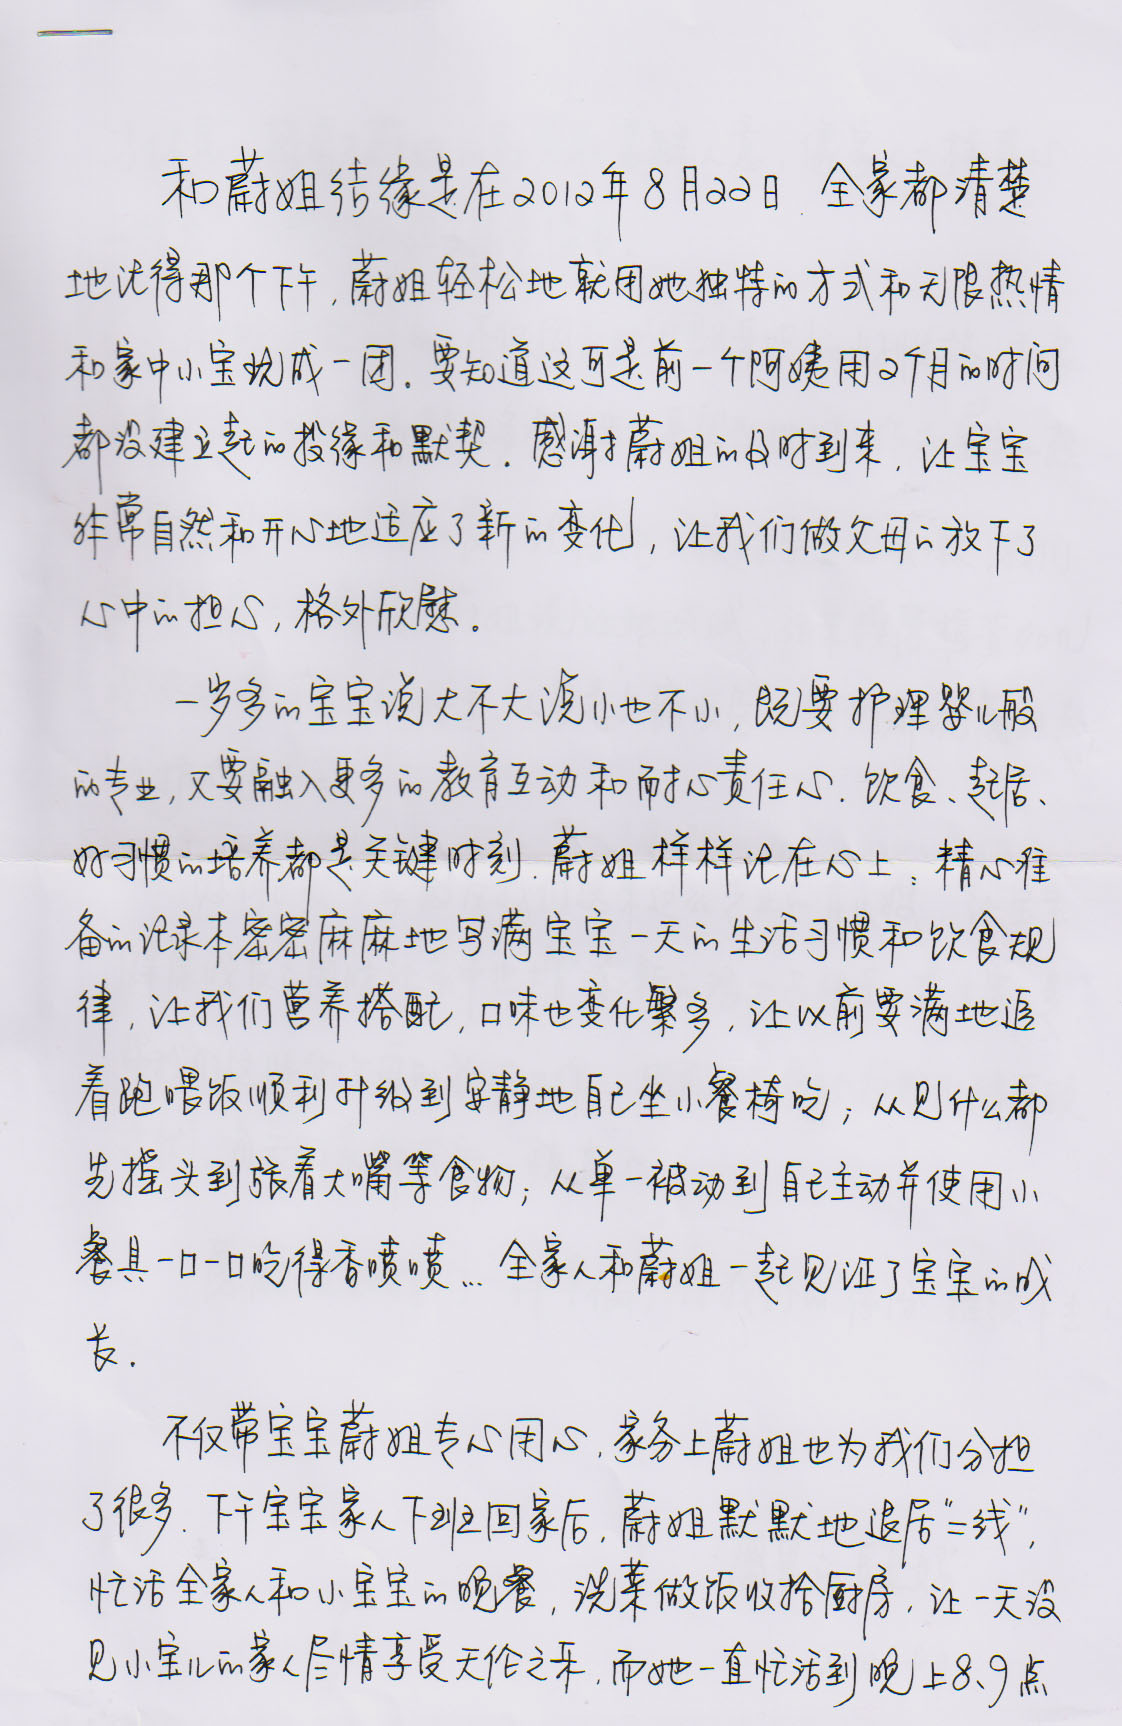 和蔚姐结缘是在2012年8月22日.全家都清楚
地记得那个下午,蔚姐轻松地就用她独特的方式和无限热情
和家中小宝玩成一团.要知道这可是前一个阿姨用2个月的时间
都没建立起的投缘和默契.感谢蔚姐的及时到来,让宝宝
非常自然和开心地适应了新的变化,让我们做父母的放下了
心中的担心,格外欣慰。
一岁多的宝宝说大不大说小也不小,既要护理婴儿般
的专业,又要融入更多的教育互动和耐心责任心.饮食、起居、
好习惯的培养都是关键时刻.蔚姐样样记在心上:精心准
备的记录本密密麻麻地写满宝宝一天的生活习惯和饮食规
律,让我们营养搭配,口味也变化繁多,让以前要满地追
着跑喂饭顺利升级到安静地自己坐小餐椅吃;从见什么都
先摇头到张着大嘴等食物;从单一被动到自己主动并使用小
餐具一口一口吃得香喷喷...全家人和蔚姐一起见证了宝宝的成
长.
不仅带宝宝蔚姐专心用心,家务上蔚姐也为我们分担
了很多.下午宝宝家人下班回家后,蔚姐默默地退居"二线",
忙活全家人和小宝宝的晚餐,洗菜做饭收拾厨房,让一天没
见小宝儿的家人尽情享受天伦之乐,而她一直忙活到晚上8、9点